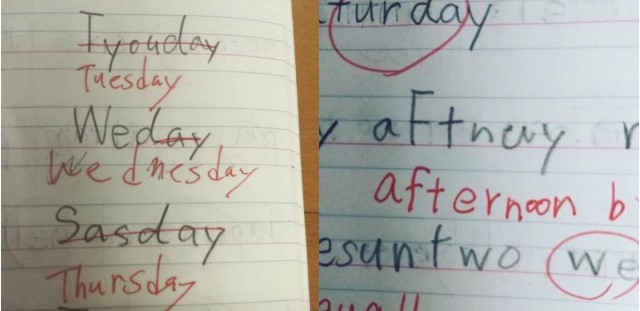 Tyouday
Tuesday
Weday
Wednesday
Sasday
Thursday
turday
y aftnay r
afternoon b
esuntwo we